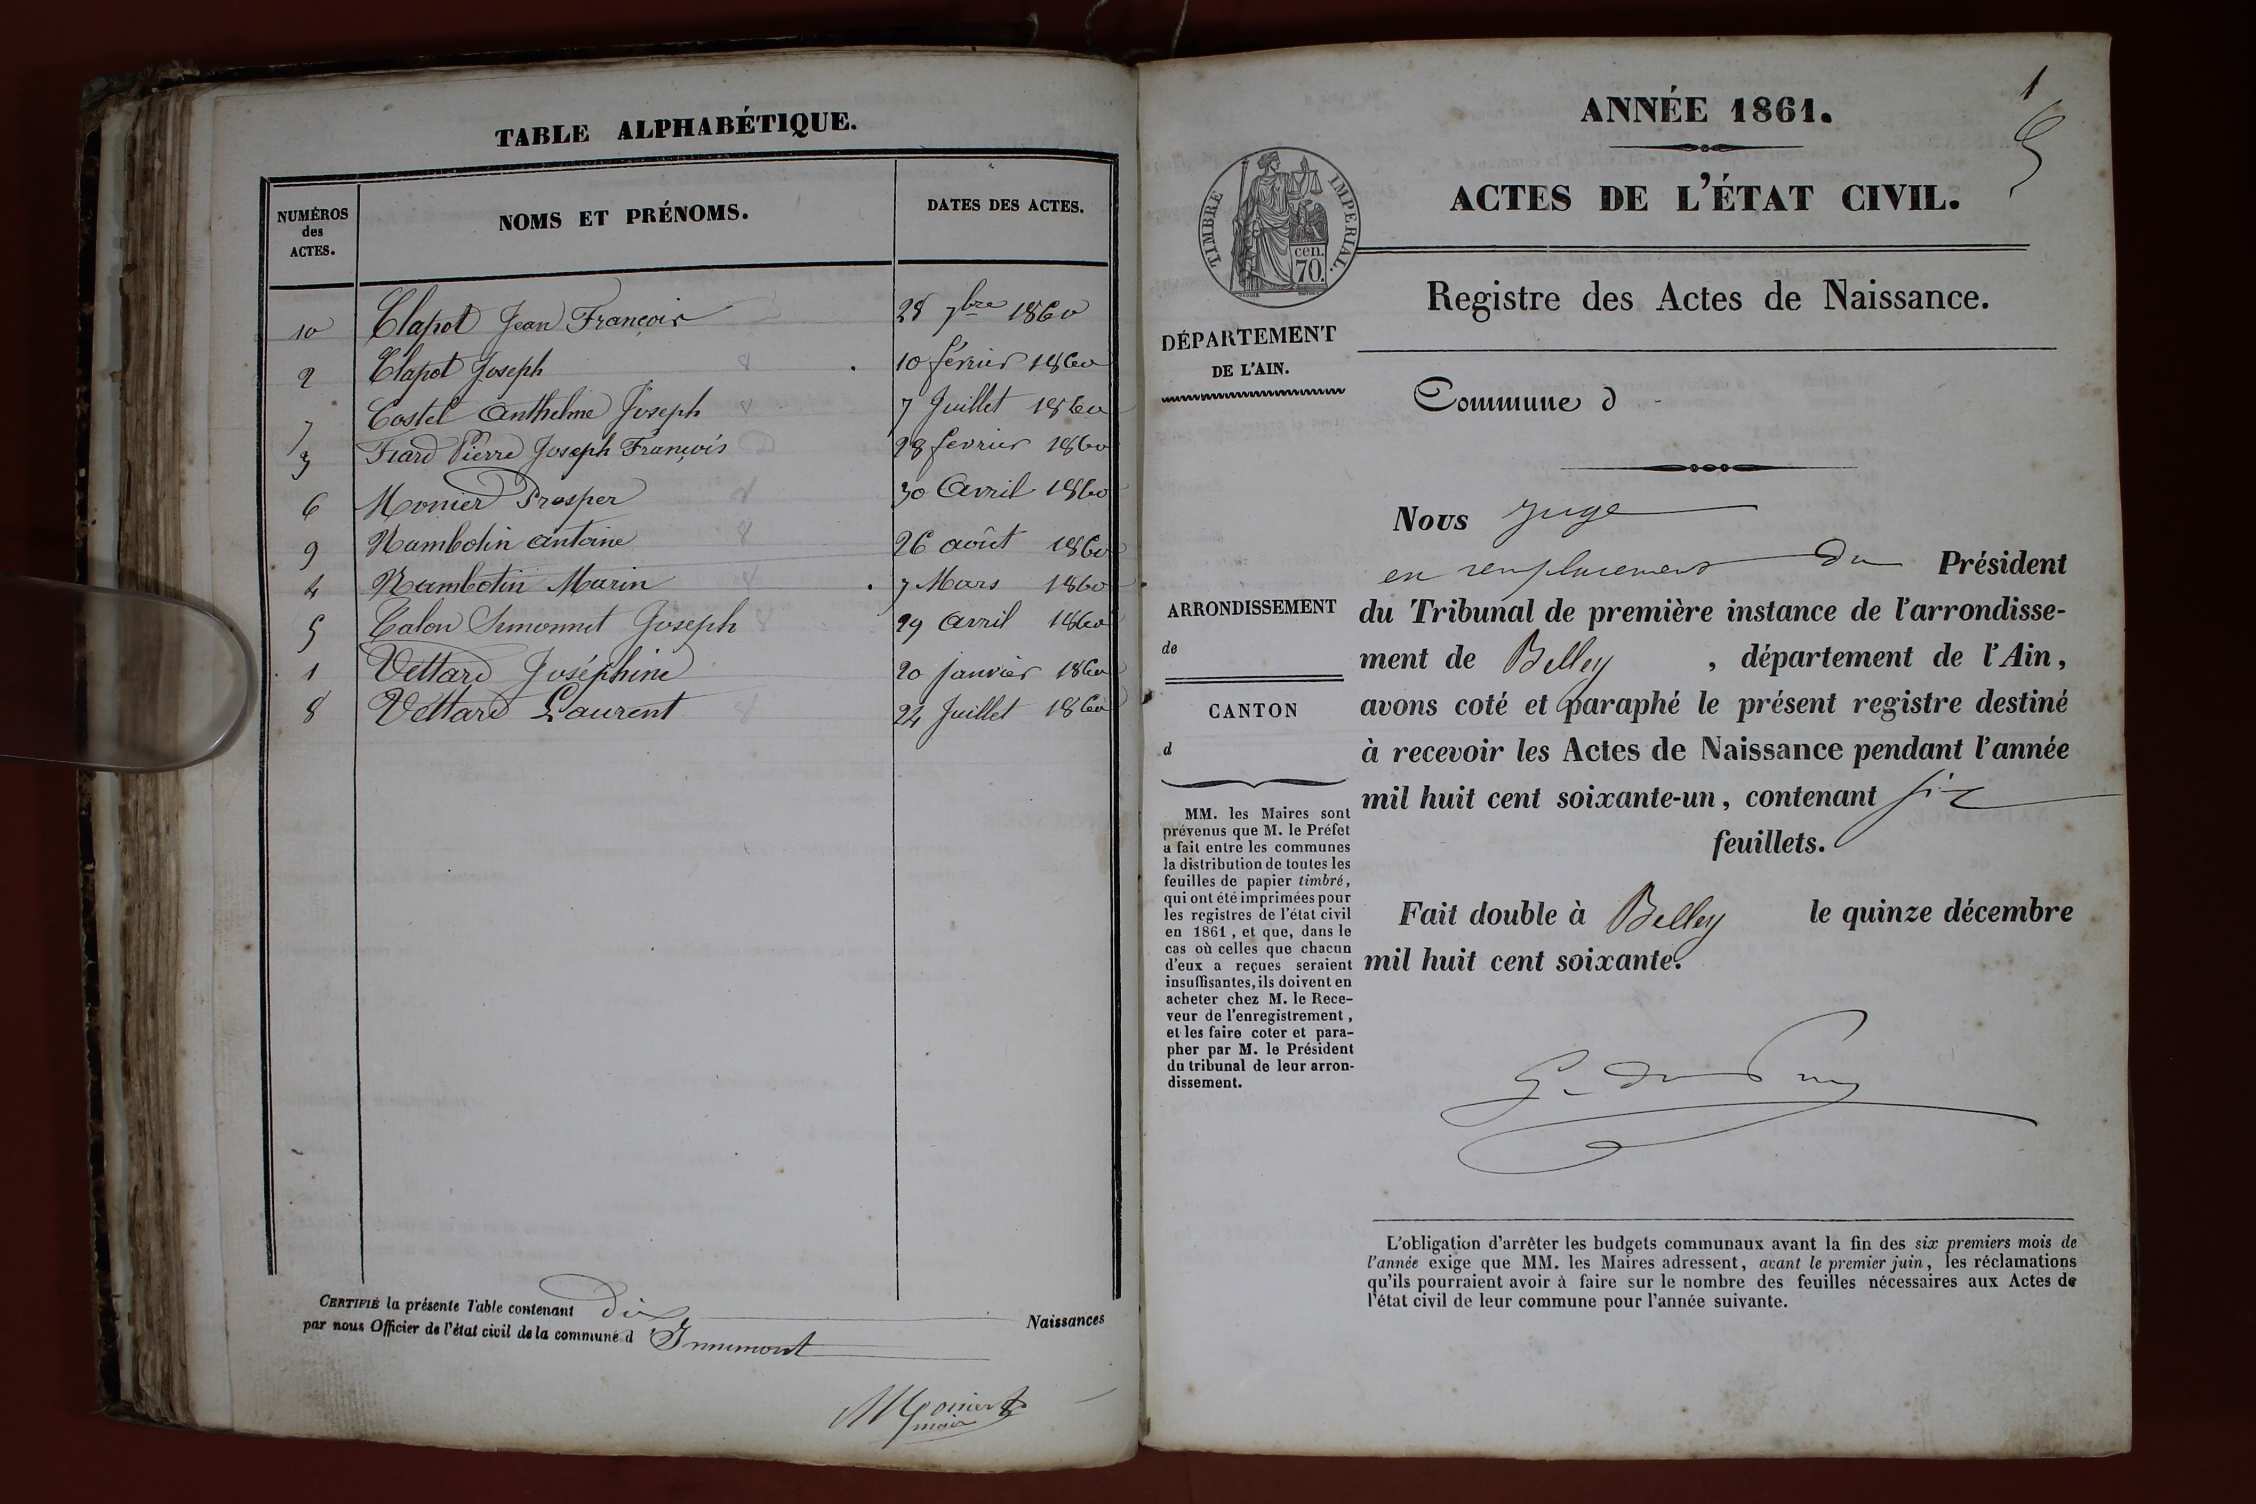 TABLE ALPHABÉTIQUE.
NUMÉROS des ACTES. NOMS ET PRÉNOMS. DATES DES ACTES.
10 Clapot Jean François 28 7bre 1860
2 Clapot Joseph 10 février 1860
7 Costel Anthelme Joseph 7 Juillet 1860
3 Fiard Pierre Joseph François 28 fevrier 1860
6 Monier Prosper 30 Avril 1860
9 Nambotin antoine 26 août 1860
4 Nambotin Marin 7 Mars 1860
5 Talon Simonnet Joseph 29 avril 1860
1 Vettard Joséphine 20 janvier 1860
8 Vettard Laurent 24 Juillet 1860
CERTIFIÉ la présente Table contenant dix Naissances
par nous Officier de l'état civil de la commune d'Innimont
Monier
maire
1
ANNÉE 1861.
ACTES DE L'ÉTAT CIVIL.
TIMBRE IMPERIAL.
cen.
70.
Registre des Actes de Naissance.
DÉPARTEMENT
DE L'AIN.
Commune d
Nous Juge
en remplacement du Président
du Tribunal de première instance de l'arrondisse-
ment de Belley, département de l'Ain,
avons coté et paraphé le présent registre destiné
à recevoir les Actes de Naissance pendant l'année
mil huit cent soixante-un, contenant six
feuillets.
Fait double à Belley le quinze décembre
mil huit cent soixante.
ARRONDISSEMENT
de
CANTON
d
MM. les Maires sont
prévenus que M. le Préfet
a fait entre les communes
la distribution de toutes les
feuilles de papier timbré,
qui ont été imprimées pour
les registres de l'état civil
en 1861, et que, dans le
cas où celles que chacun
d'eux a reçues seraient
insuffisantes, ils doivent en
acheter chez M. le Rece-
veur de l'enregistrement,
et les faire coter et para-
pher par M. le Président
du tribunal de leur arron-
dissement.
L'obligation d'arrêter les budgets communaux avant la fin des six premiers mois de
l'année exige que MM. les Maires adressent, avant le premier juin, les réclamations
qu'ils pourraient avoir à faire sur le nombre des feuilles nécessaires aux Actes de
l'état civil de leur commune pour l'année suivante.